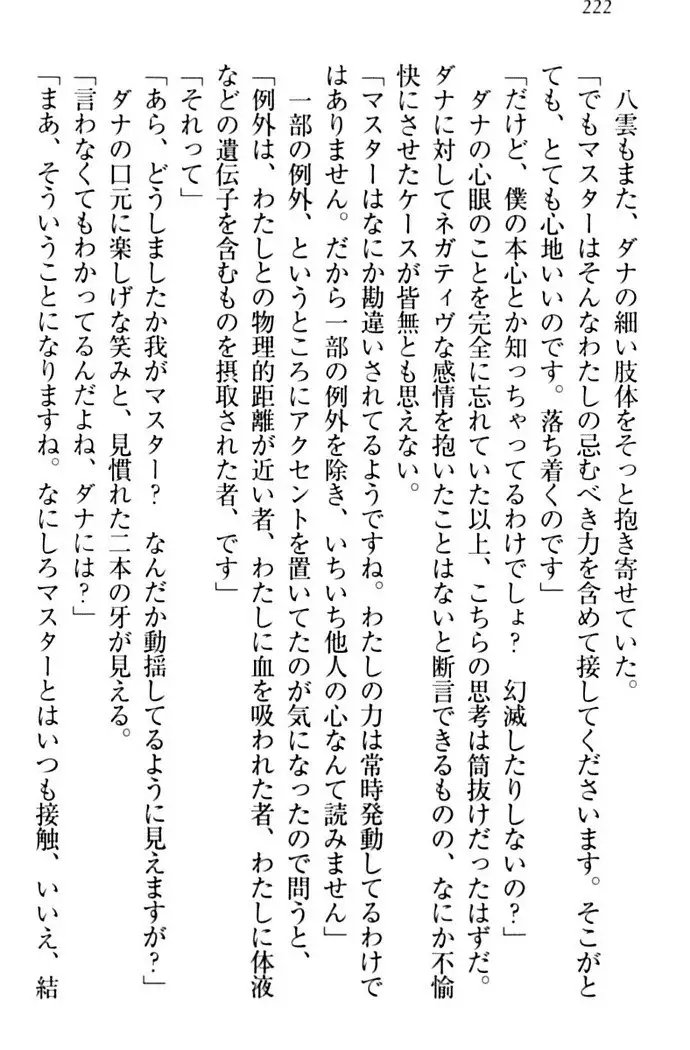 222
八雲もまた、ダナの細い肢体をそっと抱き寄せていた。
「でもマスターはそんなわたしの忌むべき力を含めて接してくださいます。そこがと
ても、とても心地いいのです。落ち着くのです」
「だけど、僕の本心とか知っちゃってるわけでしょ？　幻滅したりしないの？」
ダナの心眼のことを完全に忘れていた以上、こちらの思考は筒抜けだったはずだ。
ダナに対してネガティヴな感情を抱いたことはないと断言できるものの、なにか不愉
快にさせたケースが皆無とも思えない。
「マスターはなにか勘違いされてるようですね。わたしの力は常時発動してるわけで
はありません。だから一部の例外を除き、いちいち他人の心なんて読みません」
一部の例外、というところにアクセントを置いてたのが気になったので問うと、
「例外は、わたしとの物理的距離が近い者、わたしに血を吸われた者、わたしに体液
などの遺伝子を含むものを摂取された者、です」
「それって」
「あら、どうしましたか我がマスター？　なんだか動揺してるように見えますが？」
ダナの口元に楽しげな笑みと、見慣れた二本の牙が見える。
「言わなくてもわかってるんだよね、ダナには？」
「まあ、そういうことになりますね。なにしろマスターとはいつも接触、いいえ、結